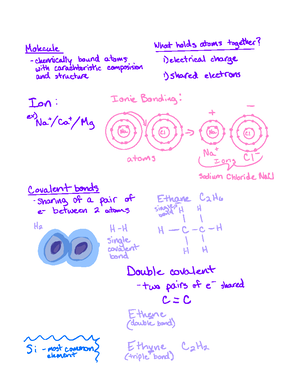 Molecule
- chemically bound atoms
with carachteristic composition
and structure
What holds atoms together?
1) electrical charge
2) shared electrons
Ion:
ex)
Na⁺/Ca⁺/Mg
Ionic Bonding:
+ −
Na Cl Na Cl
atoms
Na⁺ Ions Cl⁻
Sodium Chloride NaCl
Covalent bonds
- Sharing of a pair of
e⁻ between 2 atoms
H₂
H-H
single
covalent
bond
Ethane C₂H₆
single
bond
H H
H - C - C - H
H H
Double covalent
- two pairs of e⁻ shared
C = C
Ethene
(double bond)
Si - most common
element
Ethyne C₂H₂
(triple bond)